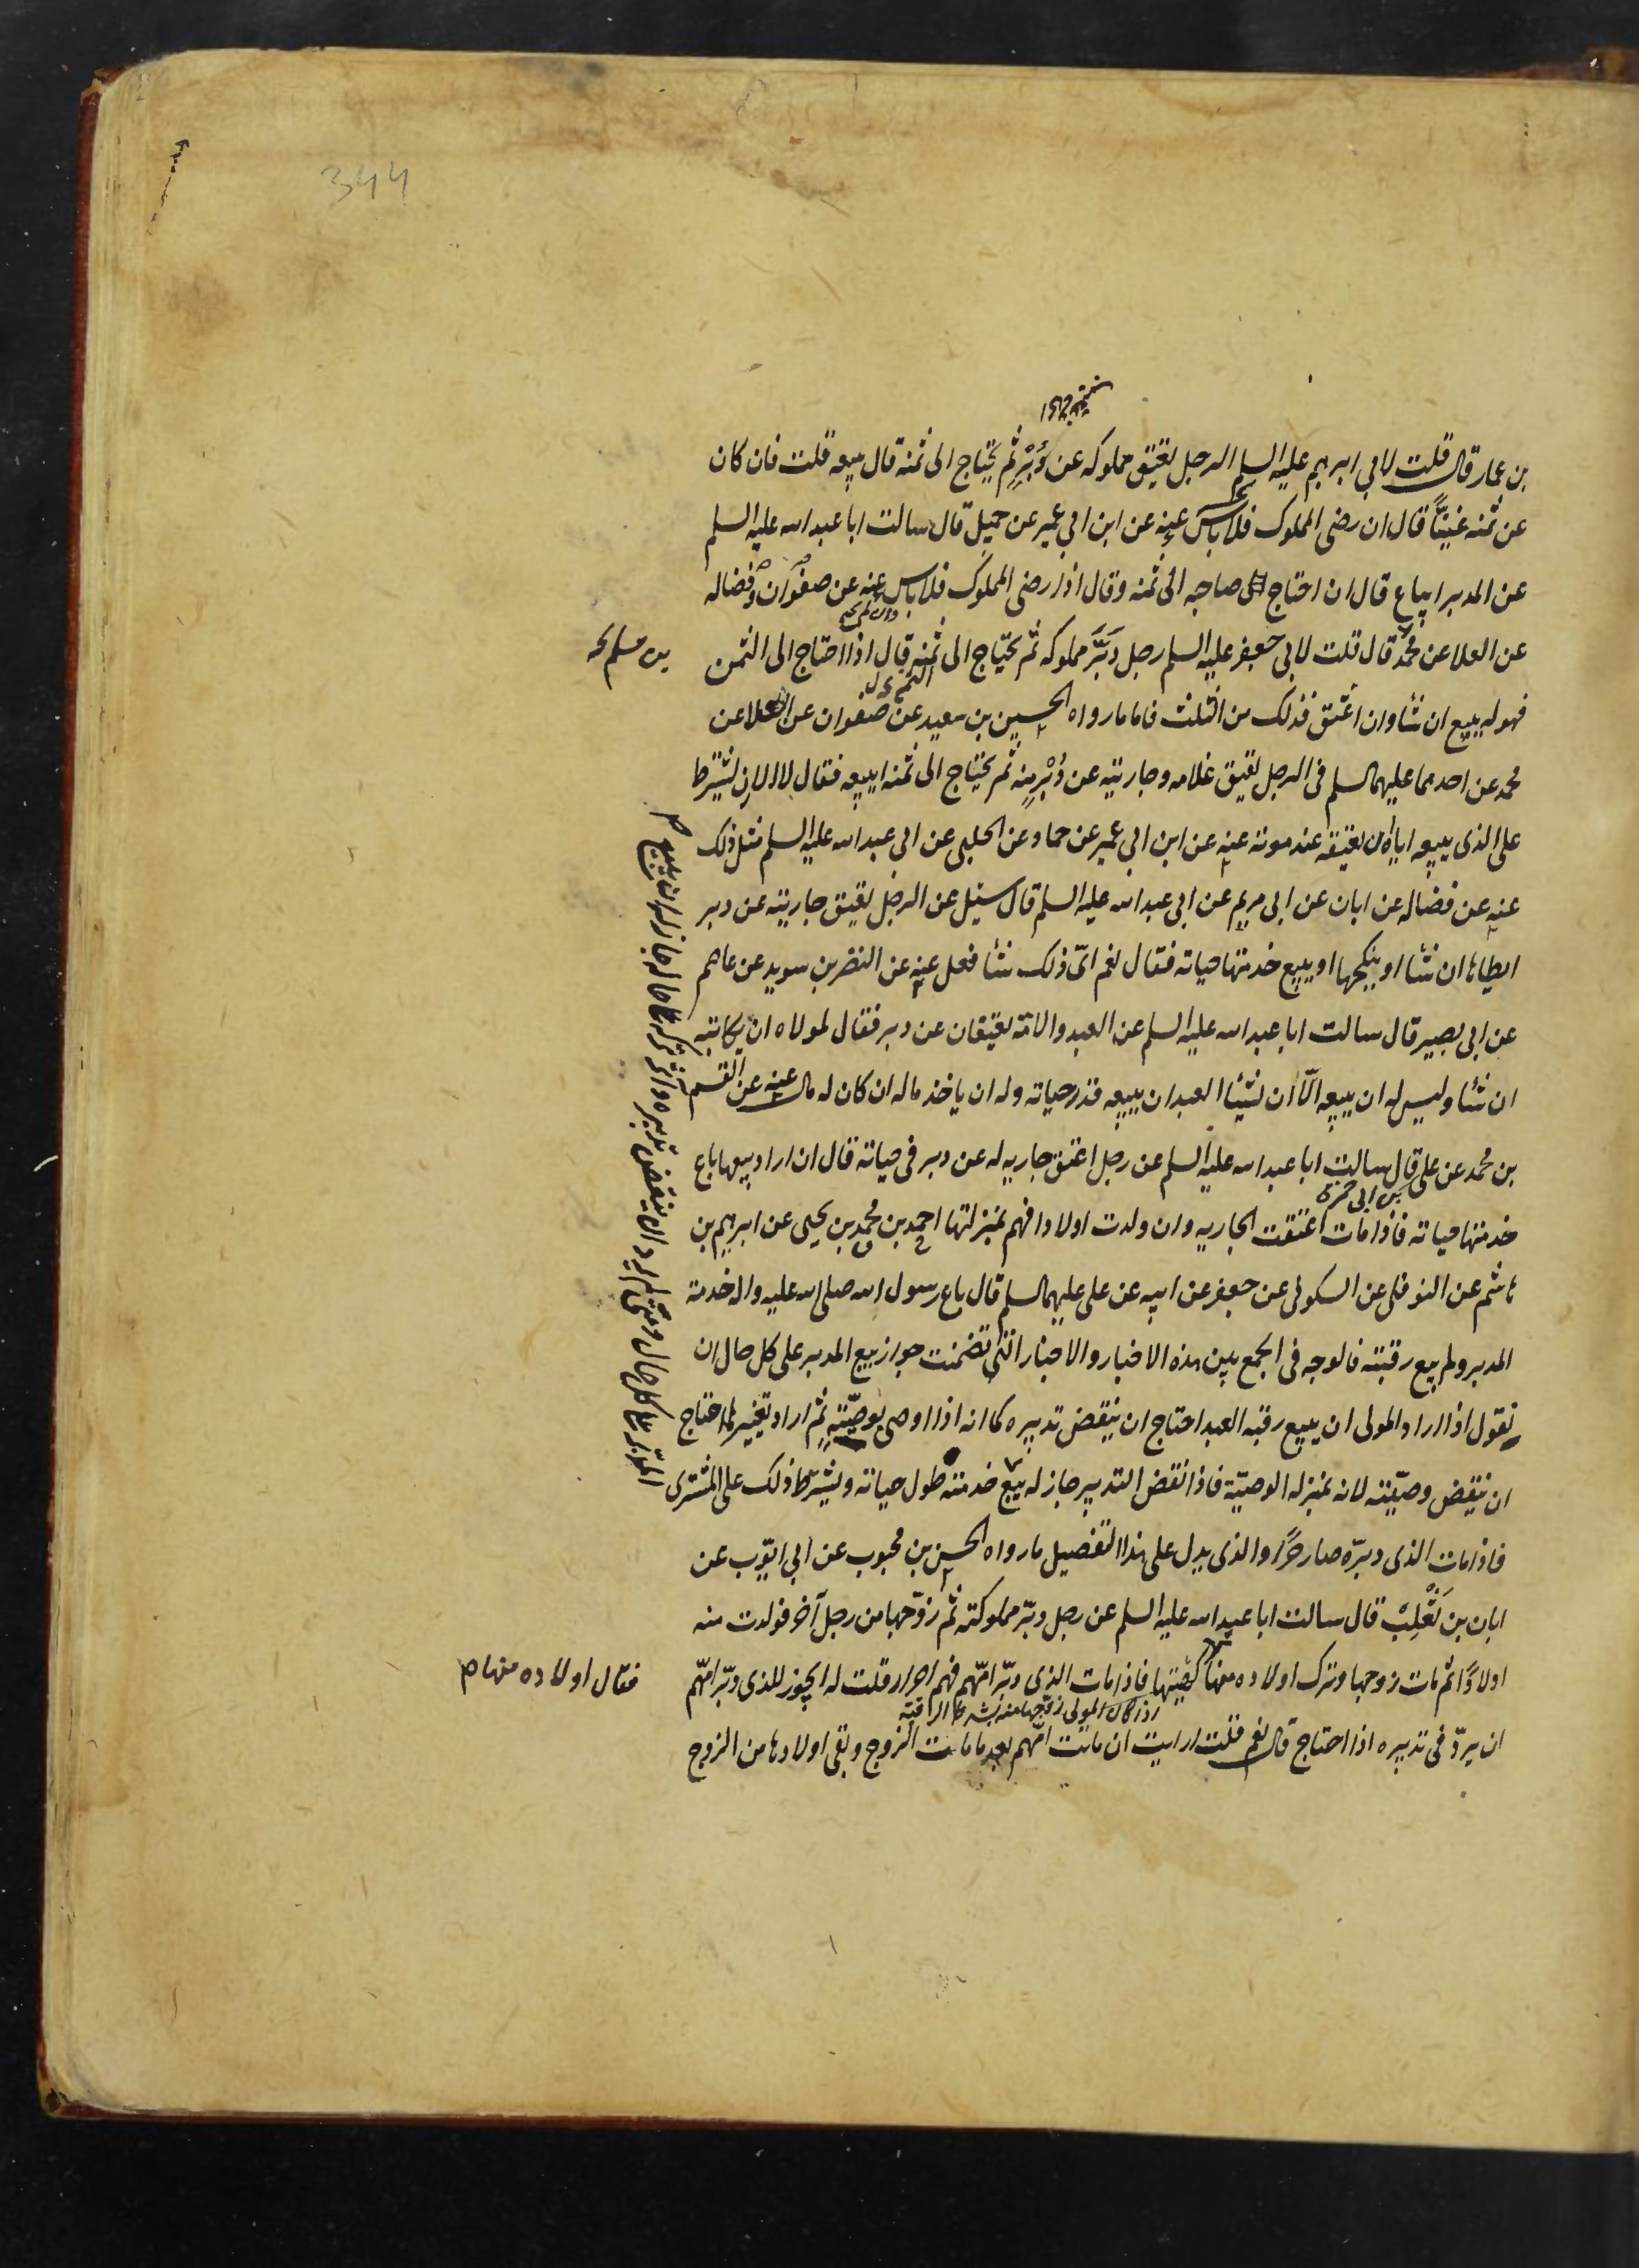 344
بن عمار قال قلت لابي ابرهيم عليه السلم الرجل يعتق مملوكه عن دُبْرٍ ثم يحتاج الى ثمنه قال يبيعه قلت فان كان
عن ثمنه غنيّاً قال ان رضى المملوك فلا باس عنه عن ابن ابي عمير عن جميل قال سالت ابا عبد الله عليه السلم
عن المدبر ايباع قال ان احتاج صاحبه الى ثمنه وقال اذا رضى المملوك فلا باس عنه عن صفوان وفضاله
عن العلا عن محمد قال قلت لابى جعفر عليه السلم رجل دَبَّرَ مملوكه ثم يحتاج الى ثمنه قال اذا احتاج الى الثمن
بن مسلم
فهو له يبيع ان شا وان اعتق فذلك من الثلث فاما ما رواه الحسين بن سعيد عن صفوان عن العلا عن
محمد عن احدهما عليهما السلم فى الرجل يعتق غلامه وجاريته عن دُبْرٍ منه ثم يحتاج الى ثمنه ايبيعه فقال لا الا ان يشترط
على الذى يبيعه اياه ان يعتقه عند موته عنه عن ابن ابي عمير عن حماد عن الحلبى عن ابى عبد الله عليه السلم مثل ذلك
عنه عن فضاله عن ابان عن ابى مريم عن ابى عبد الله عليه السلم قال سئل عن الرجل يعتق جاريته عن دبر
ايطاها ان شا او ينكحها او يبيع خدمتها حياته فقال نعم اىّ ذلك شا فعل عنه عن النضر بن سويد عن عاصم
عن ابى بصير قال سالت ابا عبد الله عليه السلم عن العبد والامة يعتقان عن دبر فقال لمولاه ان يكاتبه
ان شا وليس له ان يبيعه الّا ان يشا العبد ان يبيعه قدر حياته وله ان ياخذ ماله ان كان له مال عنه عن القسم
بن محمد عن على قال سالت ابا عبد الله عليه السلم عن رجل اعتق جاريه له عن دبر فى حياته قال ان اراد بيعها باع
بن ابى حمزه
خدمتها حياته فاذا مات اعتقت الجاريه وان ولدت اولادا فهم بمنزلتها احمد بن محمد بن يحيى عن ابرهيم بن
هاشم عن النوفلى عن السكونى عن جعفر عن ابيه عن على عليهما السلم قال باع رسول الله صلى الله عليه واله خدمة
المدبر ولم يبع رقبته فالوجه فى الجمع بين هذه الاخبار والاخبار التى تضمنت جواز بيع المدبر على كل حال ان
نقول اذا اراد المولى ان يبيع رقبه العبد احتاج ان ينقض تدبيره كما انه اذا اوصى بوصيّته ثم اراد تغييرها احتاج
ان ينقض وصيّته لانه بمنزله الوصيّة فاذا نقض التدبير جاز له بيع خدمته طول حياته ويشترط ذلك على المشترى
فاذا مات الذى دبرّه صار حرًّا والذى يدل على هذا التفصيل ما رواه الحسن بن محبوب عن ابي ايّوب عن
ابان بن تَغْلِبْ قال سالت ابا عبد الله عليه السلم عن رجل دبّر مملوكته ثم زوّجها من رجل آخر فولدت منه
اولادًا ثم مات زوجها وترك اولاده منها كهيئتها فاذا مات الذى دبّر امّهم فهم احرار قلت له ايجوز للذى دبّر امّهم
فقال اولاده منها
ان يردّ فى تدبيره اذا احتاج قال نعم قلت ارايت ان ماتت امّهم بعد ما مات الزوج وبقى اولادها من الزوج